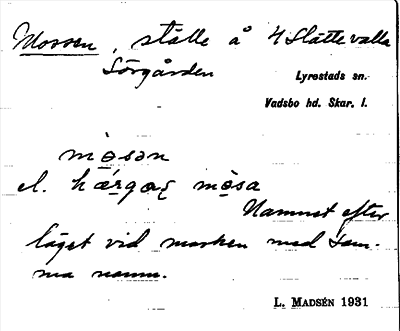 Mossen, ställe å 4 Slättevalla
Sörgården
Lyrestads sn.
Vadsbo hd. Skar. l.
mösən
el. hærgaɽ mösa
Namnet efter
läget vid marken med sam-
ma namn.
L. MADSÉN 1931